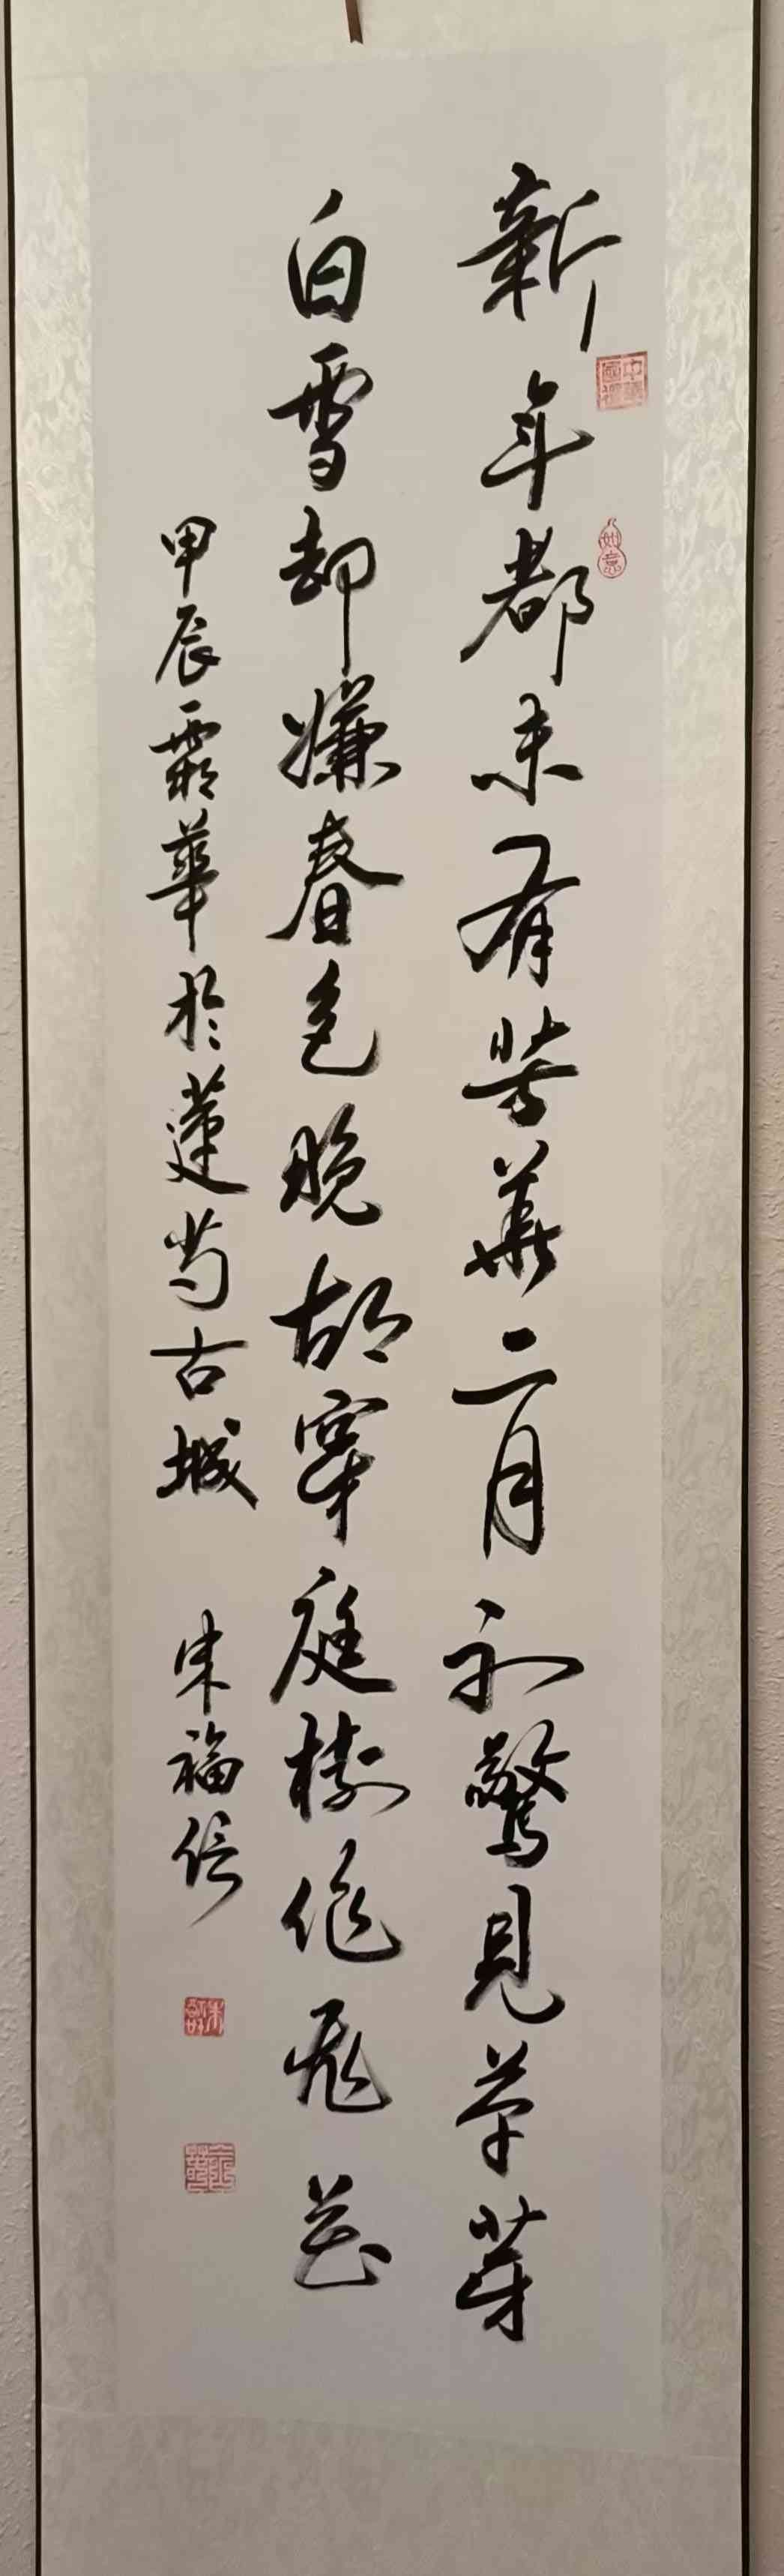 新年都未有芳華二月初驚見草芽
白雪却嫌春色晚故穿庭樹作飛花
甲辰霜華於蓮芍古城 朱福信
中華國禮
如意